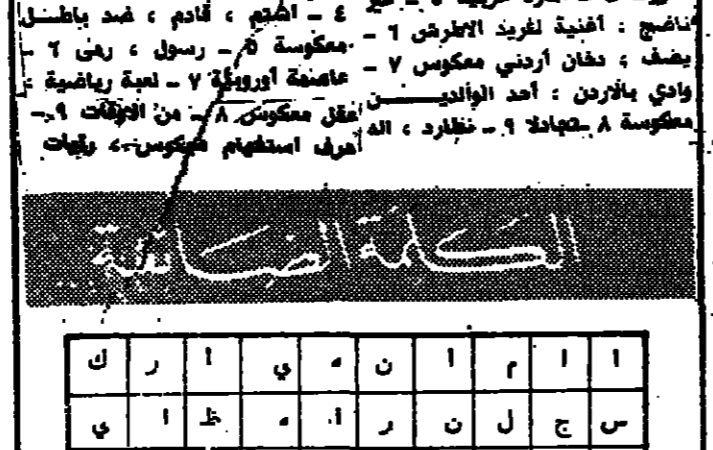 ناضج ؛ أغنية لفريد الاطرش ٦ -
يضف ؛ دفان أردني معكوس ٧ -
وادي بالاردن ؛ أحد الوالديـــــن
معكوسة ٨ - تجادلا ٩ - نظارد ، اله
٤ - اشتم ، قادم ، ضد باطـــل
معكوسة ٥ - رسول ، رمى ٦ -
عاصمة أوروبية ٧ - لعبة رياضية ؛
عقل معكوس ٨ - من الاوقات ٩ -
حرف استفهام معكوس ، رتبات
الكلمة الضائعة
ا ا م أ ن ه ي أ ر ك
س ج ل ن ر أ ه ظ ا ي